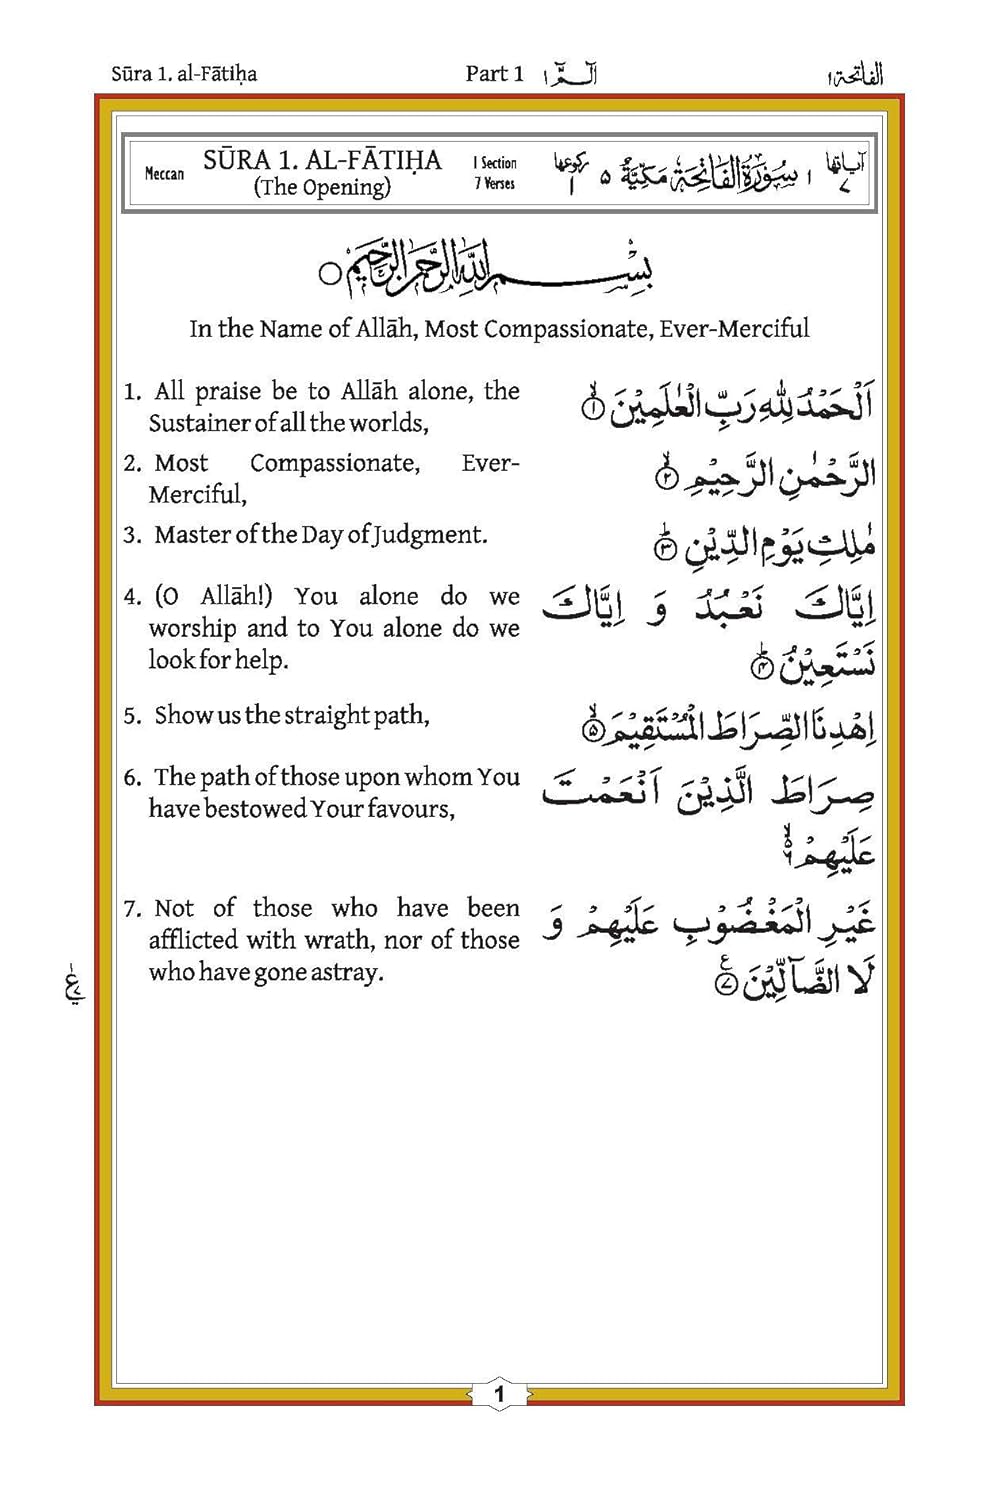 Sūra 1. al-Fātiḥa Part 1 الٓـمّٓ ١ الفاتحة ١
Meccan SŪRA 1. AL-FĀTIḤA 1 Section ركوعها ٥ سُوْرَةُ الْفَاتِحَةِ مَكِّيَّةٌ ١ آياتها
(The Opening) 7 Verses ١ ٧
بِسْمِ اللّٰهِ الرَّحْمٰنِ الرَّحِيْمِ
In the Name of Allāh, Most Compassionate, Ever-Merciful
1. All praise be to Allāh alone, the
Sustainer of all the worlds,
اَلْحَمْدُ لِلّٰهِ رَبِّ الْعٰلَمِيْنَ ۙ﴿١﴾
2. Most Compassionate, Ever-
Merciful,
الرَّحْمٰنِ الرَّحِيْمِ ۙ﴿٢﴾
3. Master of the Day of Judgment.
مٰلِكِ يَوْمِ الدِّيْنِ ؕ﴿٣﴾
4. (O Allāh!) You alone do we
worship and to You alone do we
look for help.
اِيَّاكَ نَعْبُدُ وَ اِيَّاكَ
نَسْتَعِيْنُ ؕ﴿٤﴾
5. Show us the straight path,
اِهْدِنَا الصِّرَاطَ الْمُسْتَقِيْمَ ۙ﴿٥﴾
6. The path of those upon whom You
have bestowed Your favours,
صِرَاطَ الَّذِيْنَ اَنْعَمْتَ
عَلَيْهِمْ ۙ۬ۦ٦
7. Not of those who have been
afflicted with wrath, nor of those
who have gone astray.
غَيْرِ الْمَغْضُوْبِ عَلَيْهِمْ وَ
لَا الضَّآلِّيْنَ ﴿٧﴾
1